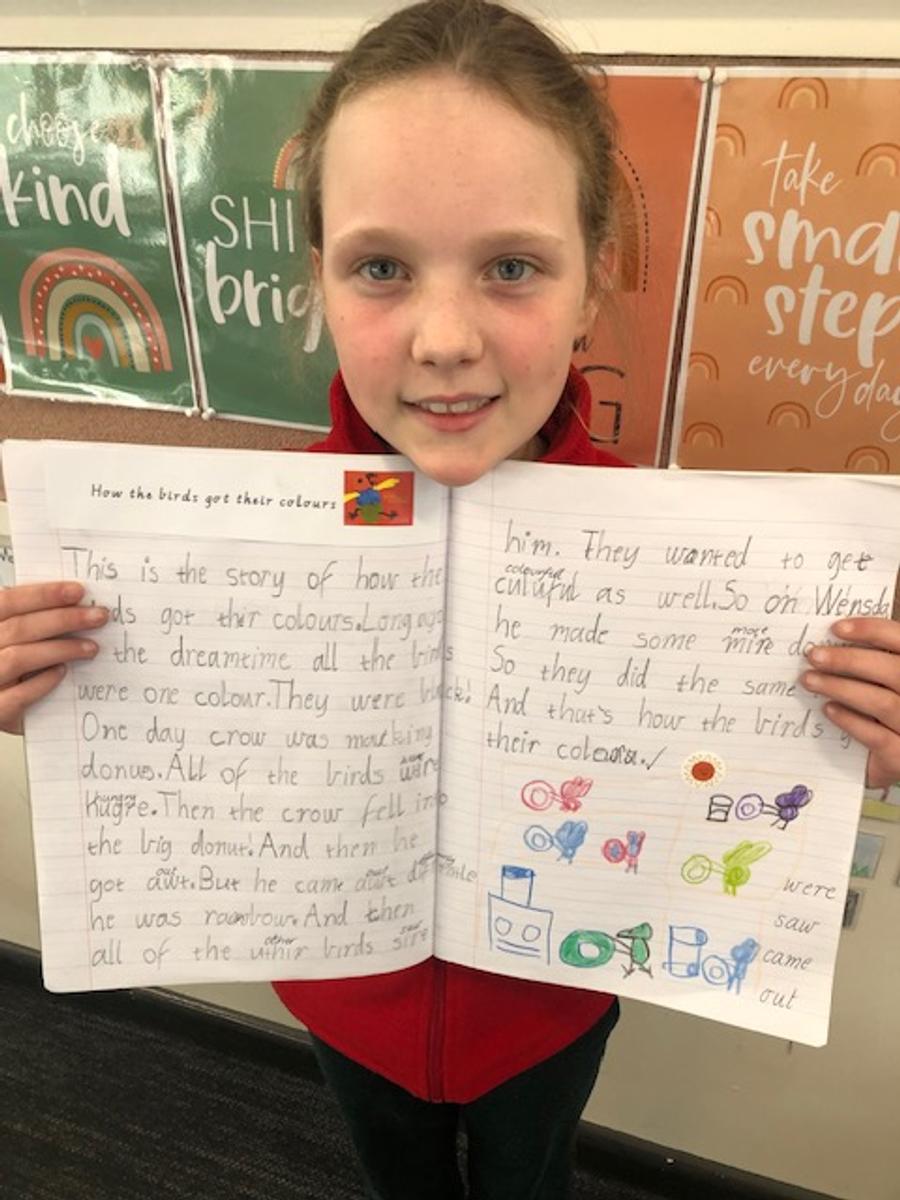 choose
kind
SHI
brig
take
sma
step
everyday
G
How the birds got their colours
This is the story of how the
ds got thir colours.Long ago
the dreamtime all the birds
were one colour.They were black!
One day crow was mackking
donus.All of the birds were
hungry
hugre.Then the crow fell into
the big donut!And then he
out
got awt.But he came awt
he was rainbow.And then
other saw
all of the uthir birds sire
him. They wanted to get
colourful
culuful as well.So on Wensda
more
he made some mire do
So they did the same
And that's how the birds g
their colours.✓
were
saw
came
out